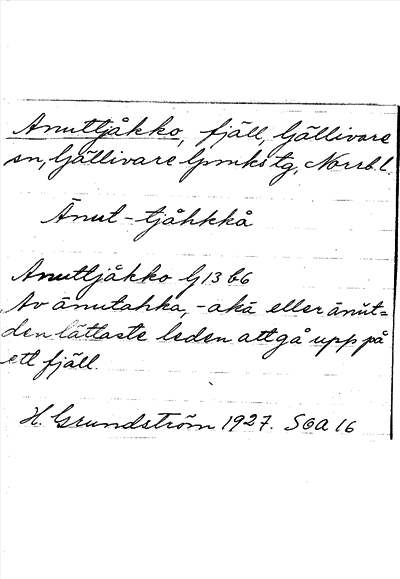 Anuttjåkko, fjäll, Gällivare
sn, Gällivare lpmks tg, Norrb. l.
Änut-tjåhkkå
Anuttjåkko G 13 b6
Av änutahka, -akä eller änut=
den lättaste leden att gå upp på
ett fjäll.
H. Grundström 1927. SOA 16